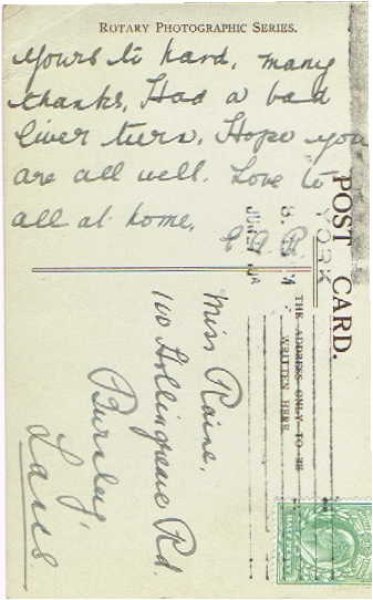 ROTARY PHOTOGRAPHIC SERIES.
Yours to hand, many
thanks, Had a bad
liver turn. Hope you
are all well. Love to
all at home.
POST CARD.
THE ADDRESS ONLY TO BE
WRITTEN HERE.
YORK
Miss Raine,
100 Hollingreave Rd.
Burnley,
Lancs